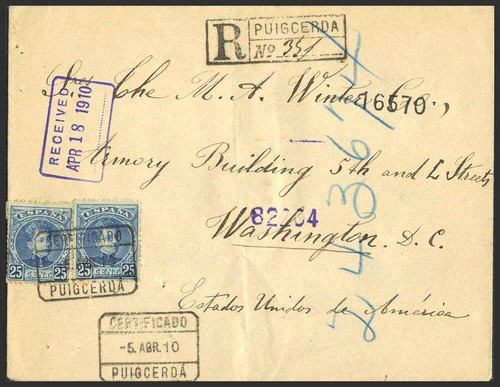 R PUIGCERDA
Nº 351
RECEIVED
APR 18 1910
Sres The M. A. Winter Co.,
16570
Armory Building 5th and L Streets
82204
Washington D. C.
243674
Estados Unidos de América
ESPAÑA ESPAÑA
25 CENT. 25 25 CENT. 25
CERTIFICADO
PUIGCERDA
CERTIFICADO
-5. ABR. 10
PUIGCERDÁ